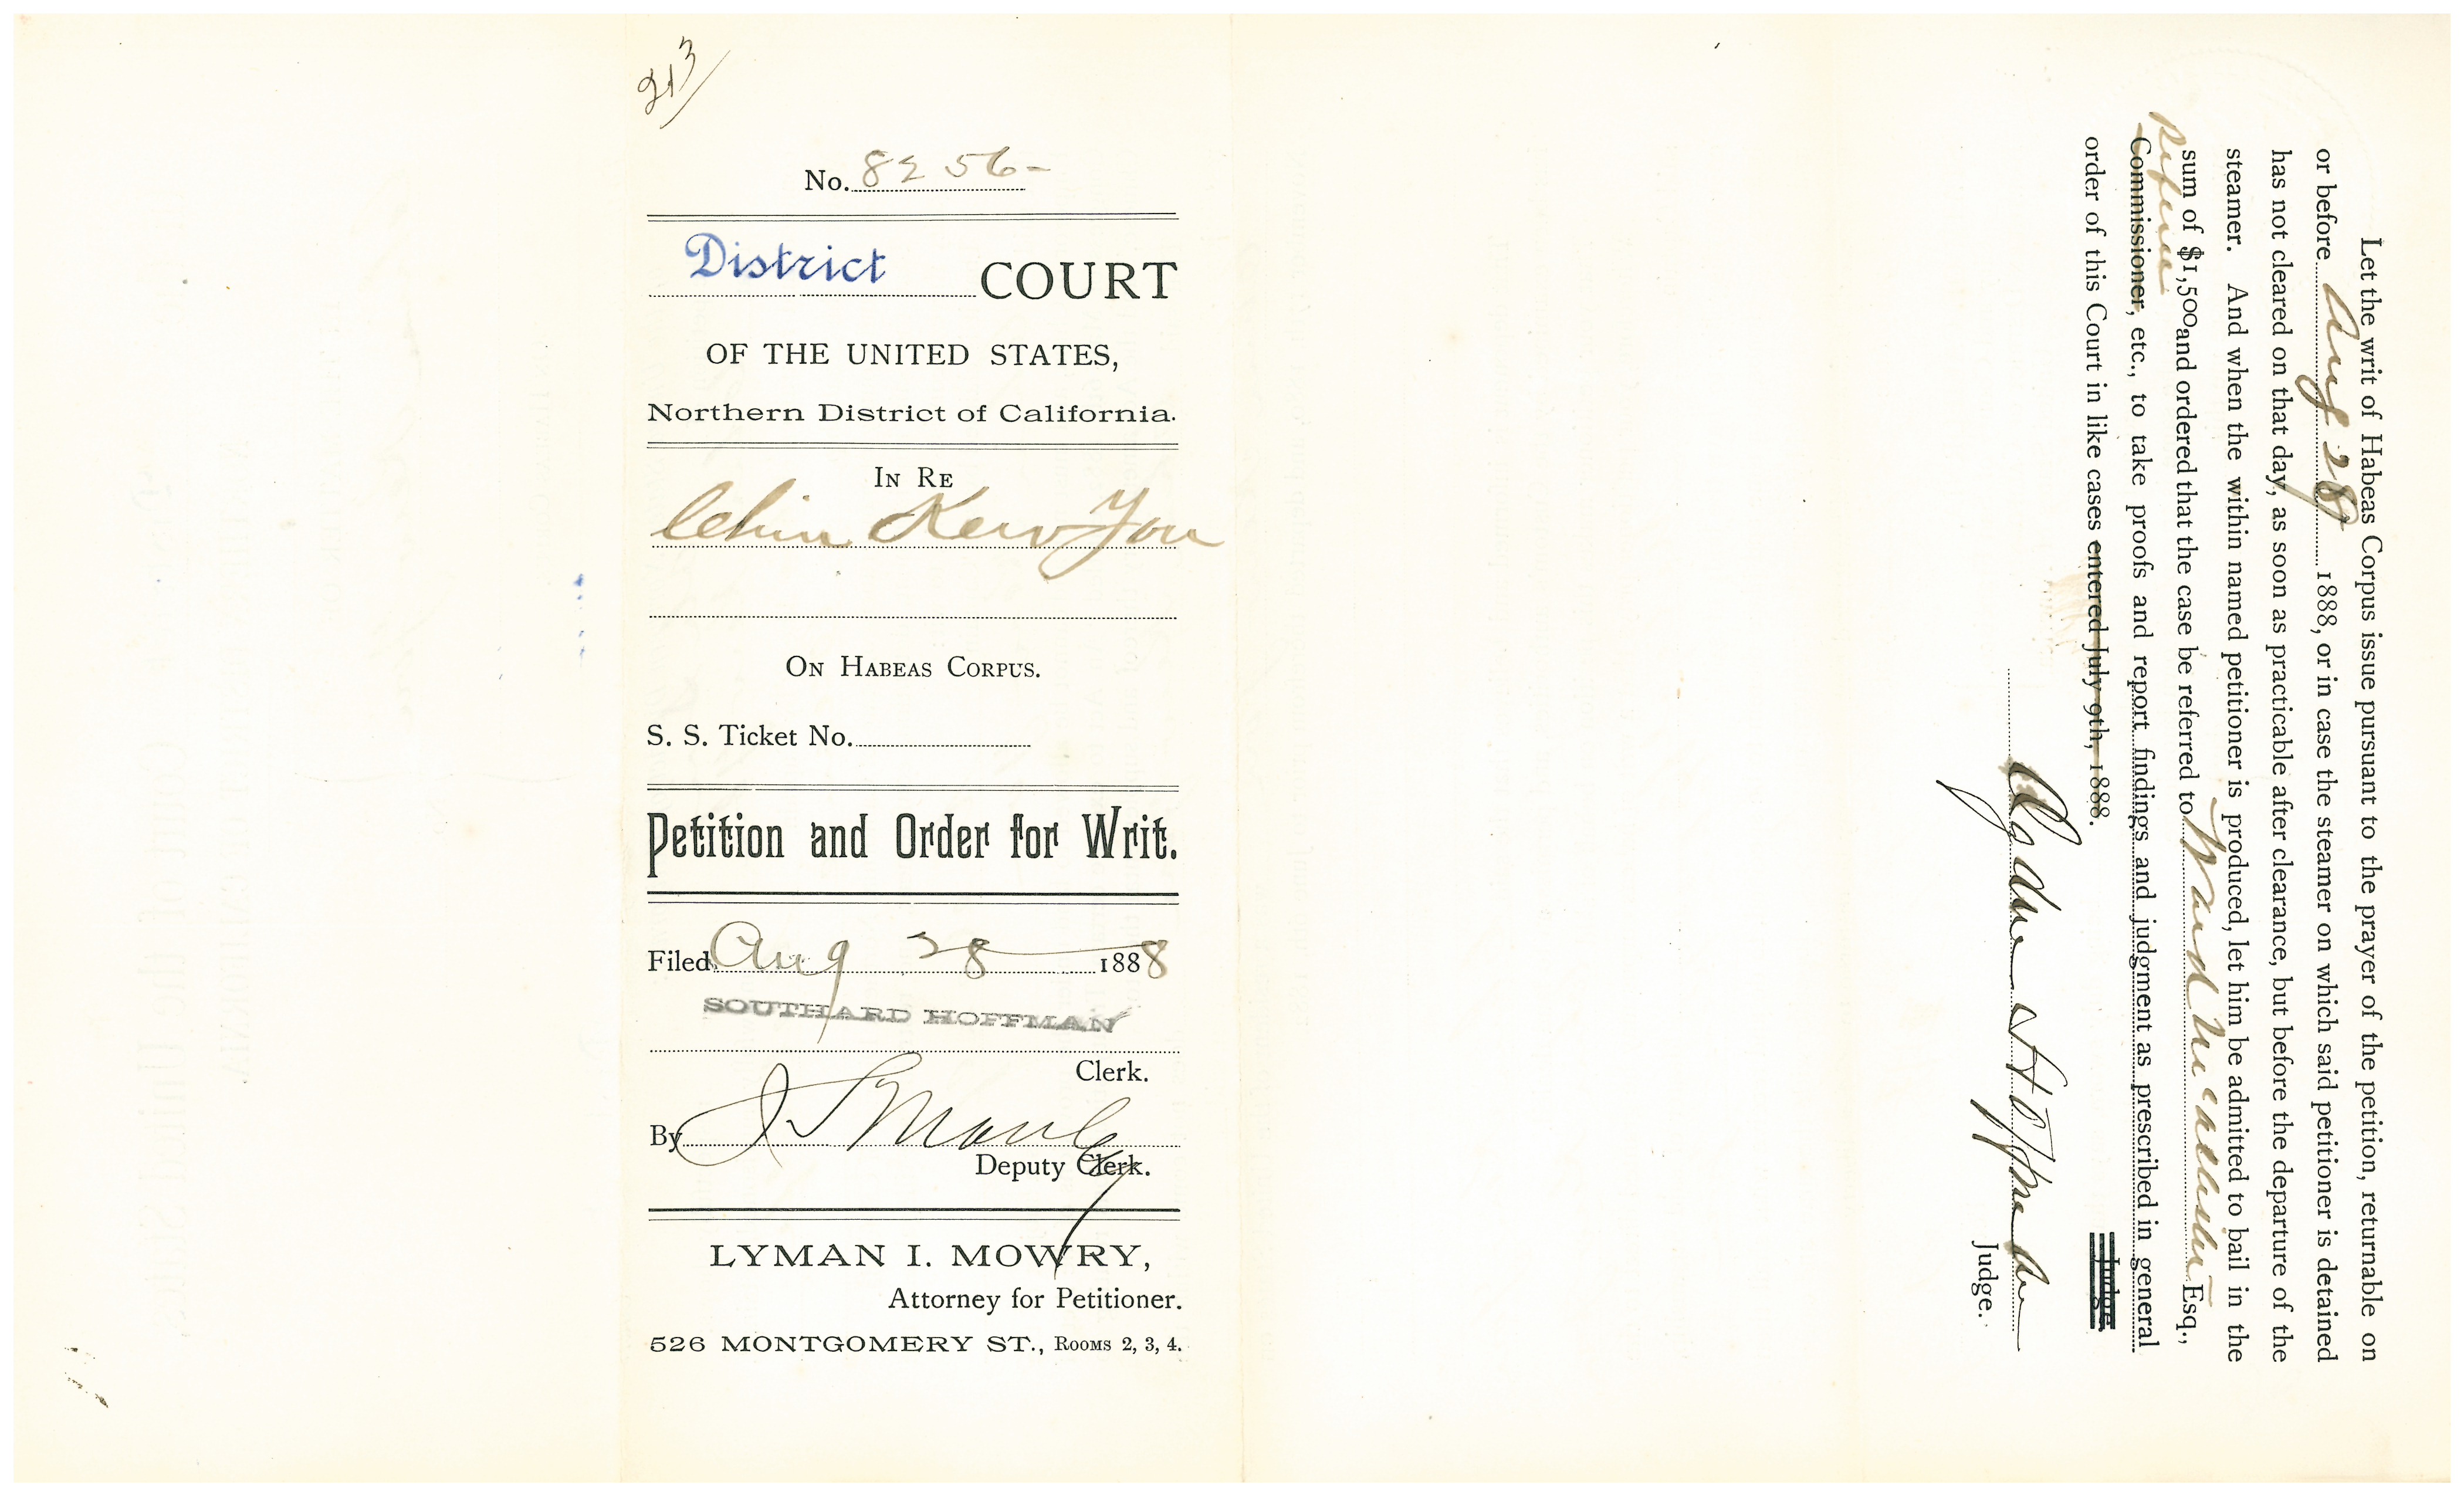 213
No. 8256-
District COURT
OF THE UNITED STATES,
Northern District of California.
IN RE
Chin Kew You
ON HABEAS CORPUS.
S. S. Ticket No.
Petition and Order for Writ.
Filed Aug 28 1888
SOUTHARD HOFFMAN
Clerk.
By
Deputy Clerk.
LYMAN I. MOWRY,
Attorney for Petitioner.
526 MONTGOMERY ST., ROOMS 2, 3, 4.
Let the writ of Habeas Corpus issue pursuant to the prayer of the petition, returnable on
or before Aug 28 1888, or in case the steamer on which said petitioner is detained
has not cleared on that day, as soon as practicable after clearance, but before the departure of the
steamer. And when the within named petitioner is produced, let him be admitted to bail in the
sum of $1,500 and ordered that the case be referred to Ward McAllister Esq.,
Referee
Commissioner, etc., to take proofs and report findings and judgment as prescribed in general
order of this Court in like cases entered July 9th, 1888.
Judge.
Ogden Hoffman
Judge.